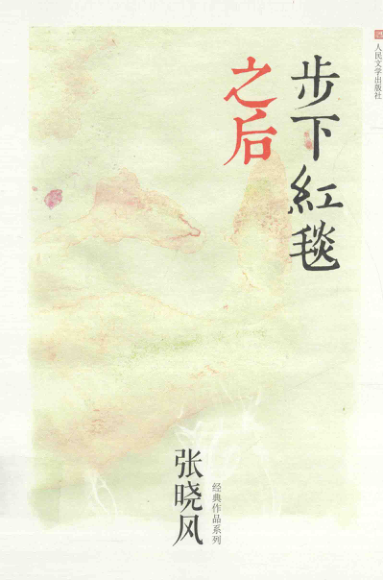 步下紅毯
之后
张晓风
经典作品系列
人民文学出版社